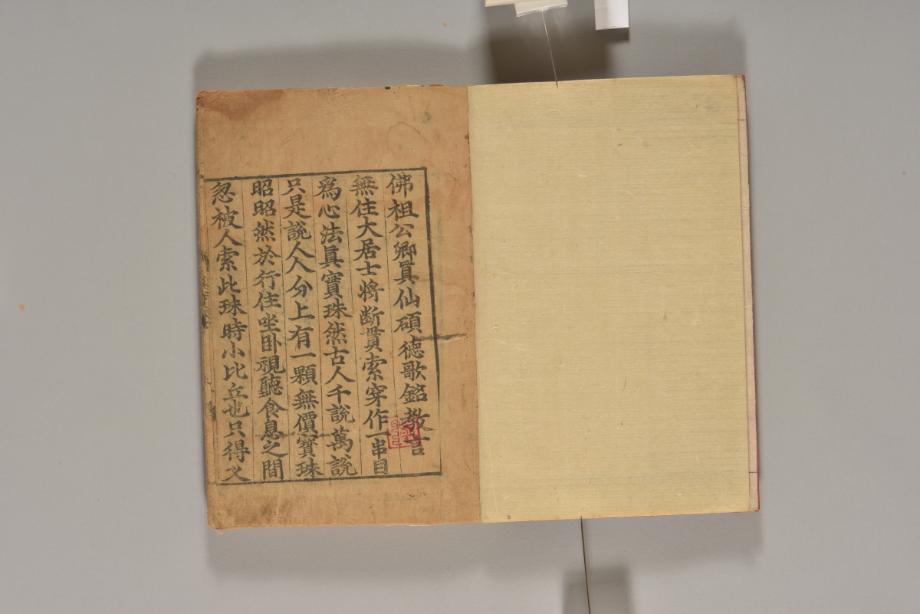 佛祖公卿眞仙碩德歌銘敎言
無住大居士將斷貫索穿作一串目
爲心法眞寳珠然古人千說萬說
只是說人人分上有一顆無價寳珠
昭昭然於行住坐卧視聽食息之間
忽被人索此珠時小比丘也只得叉